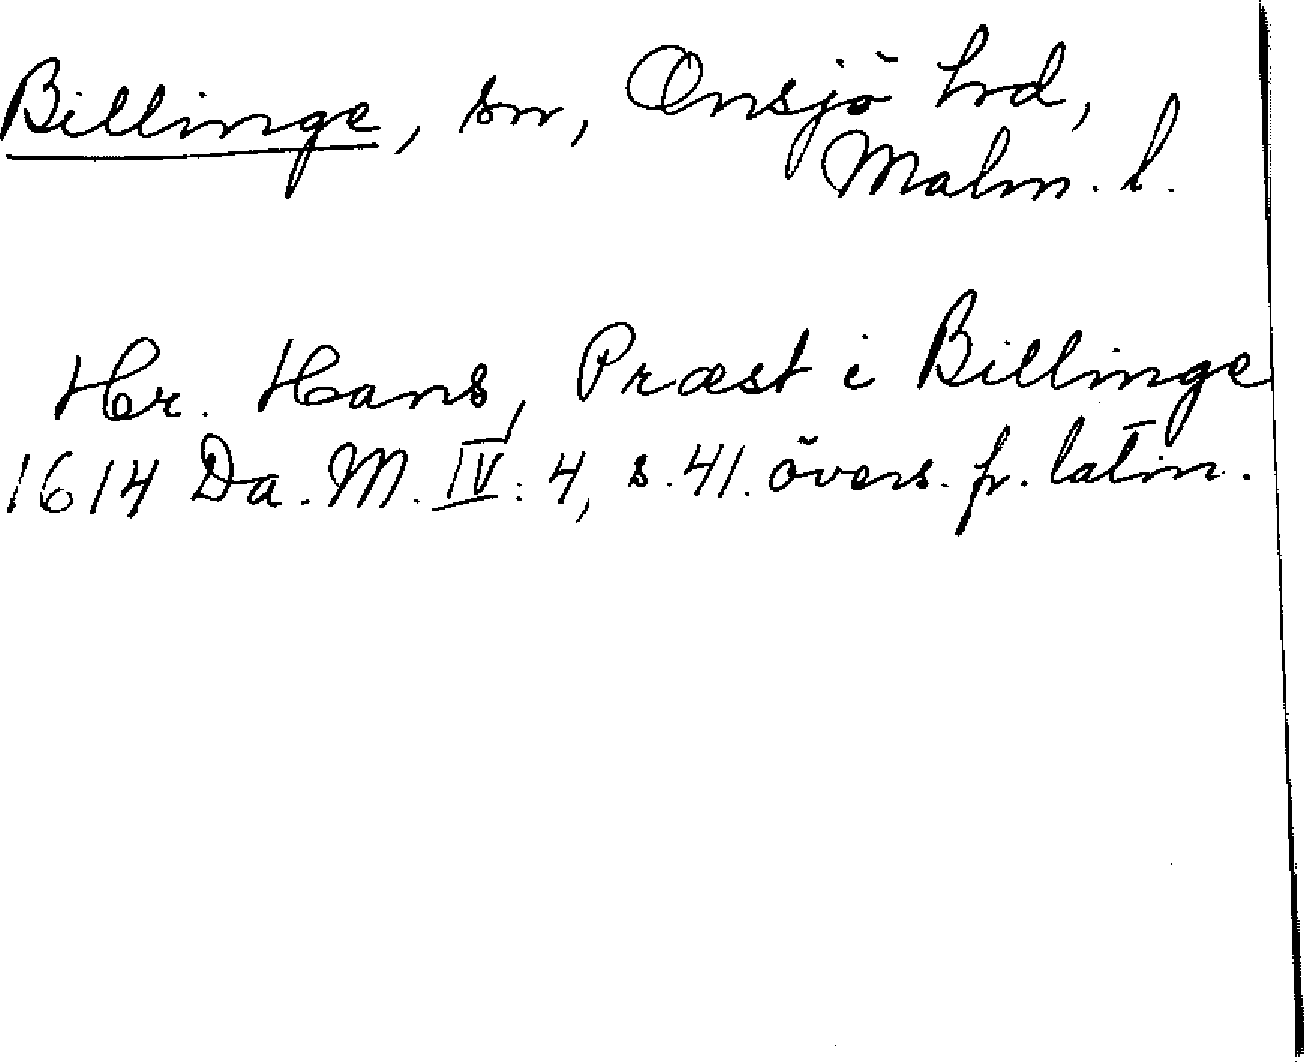 Billinge, sn, Onsjö hrd,
Malm. l.
Hr. Hans, Præst i Billinge
1614 Da. M. IV: 4, s. 41. övers. fr. latin.